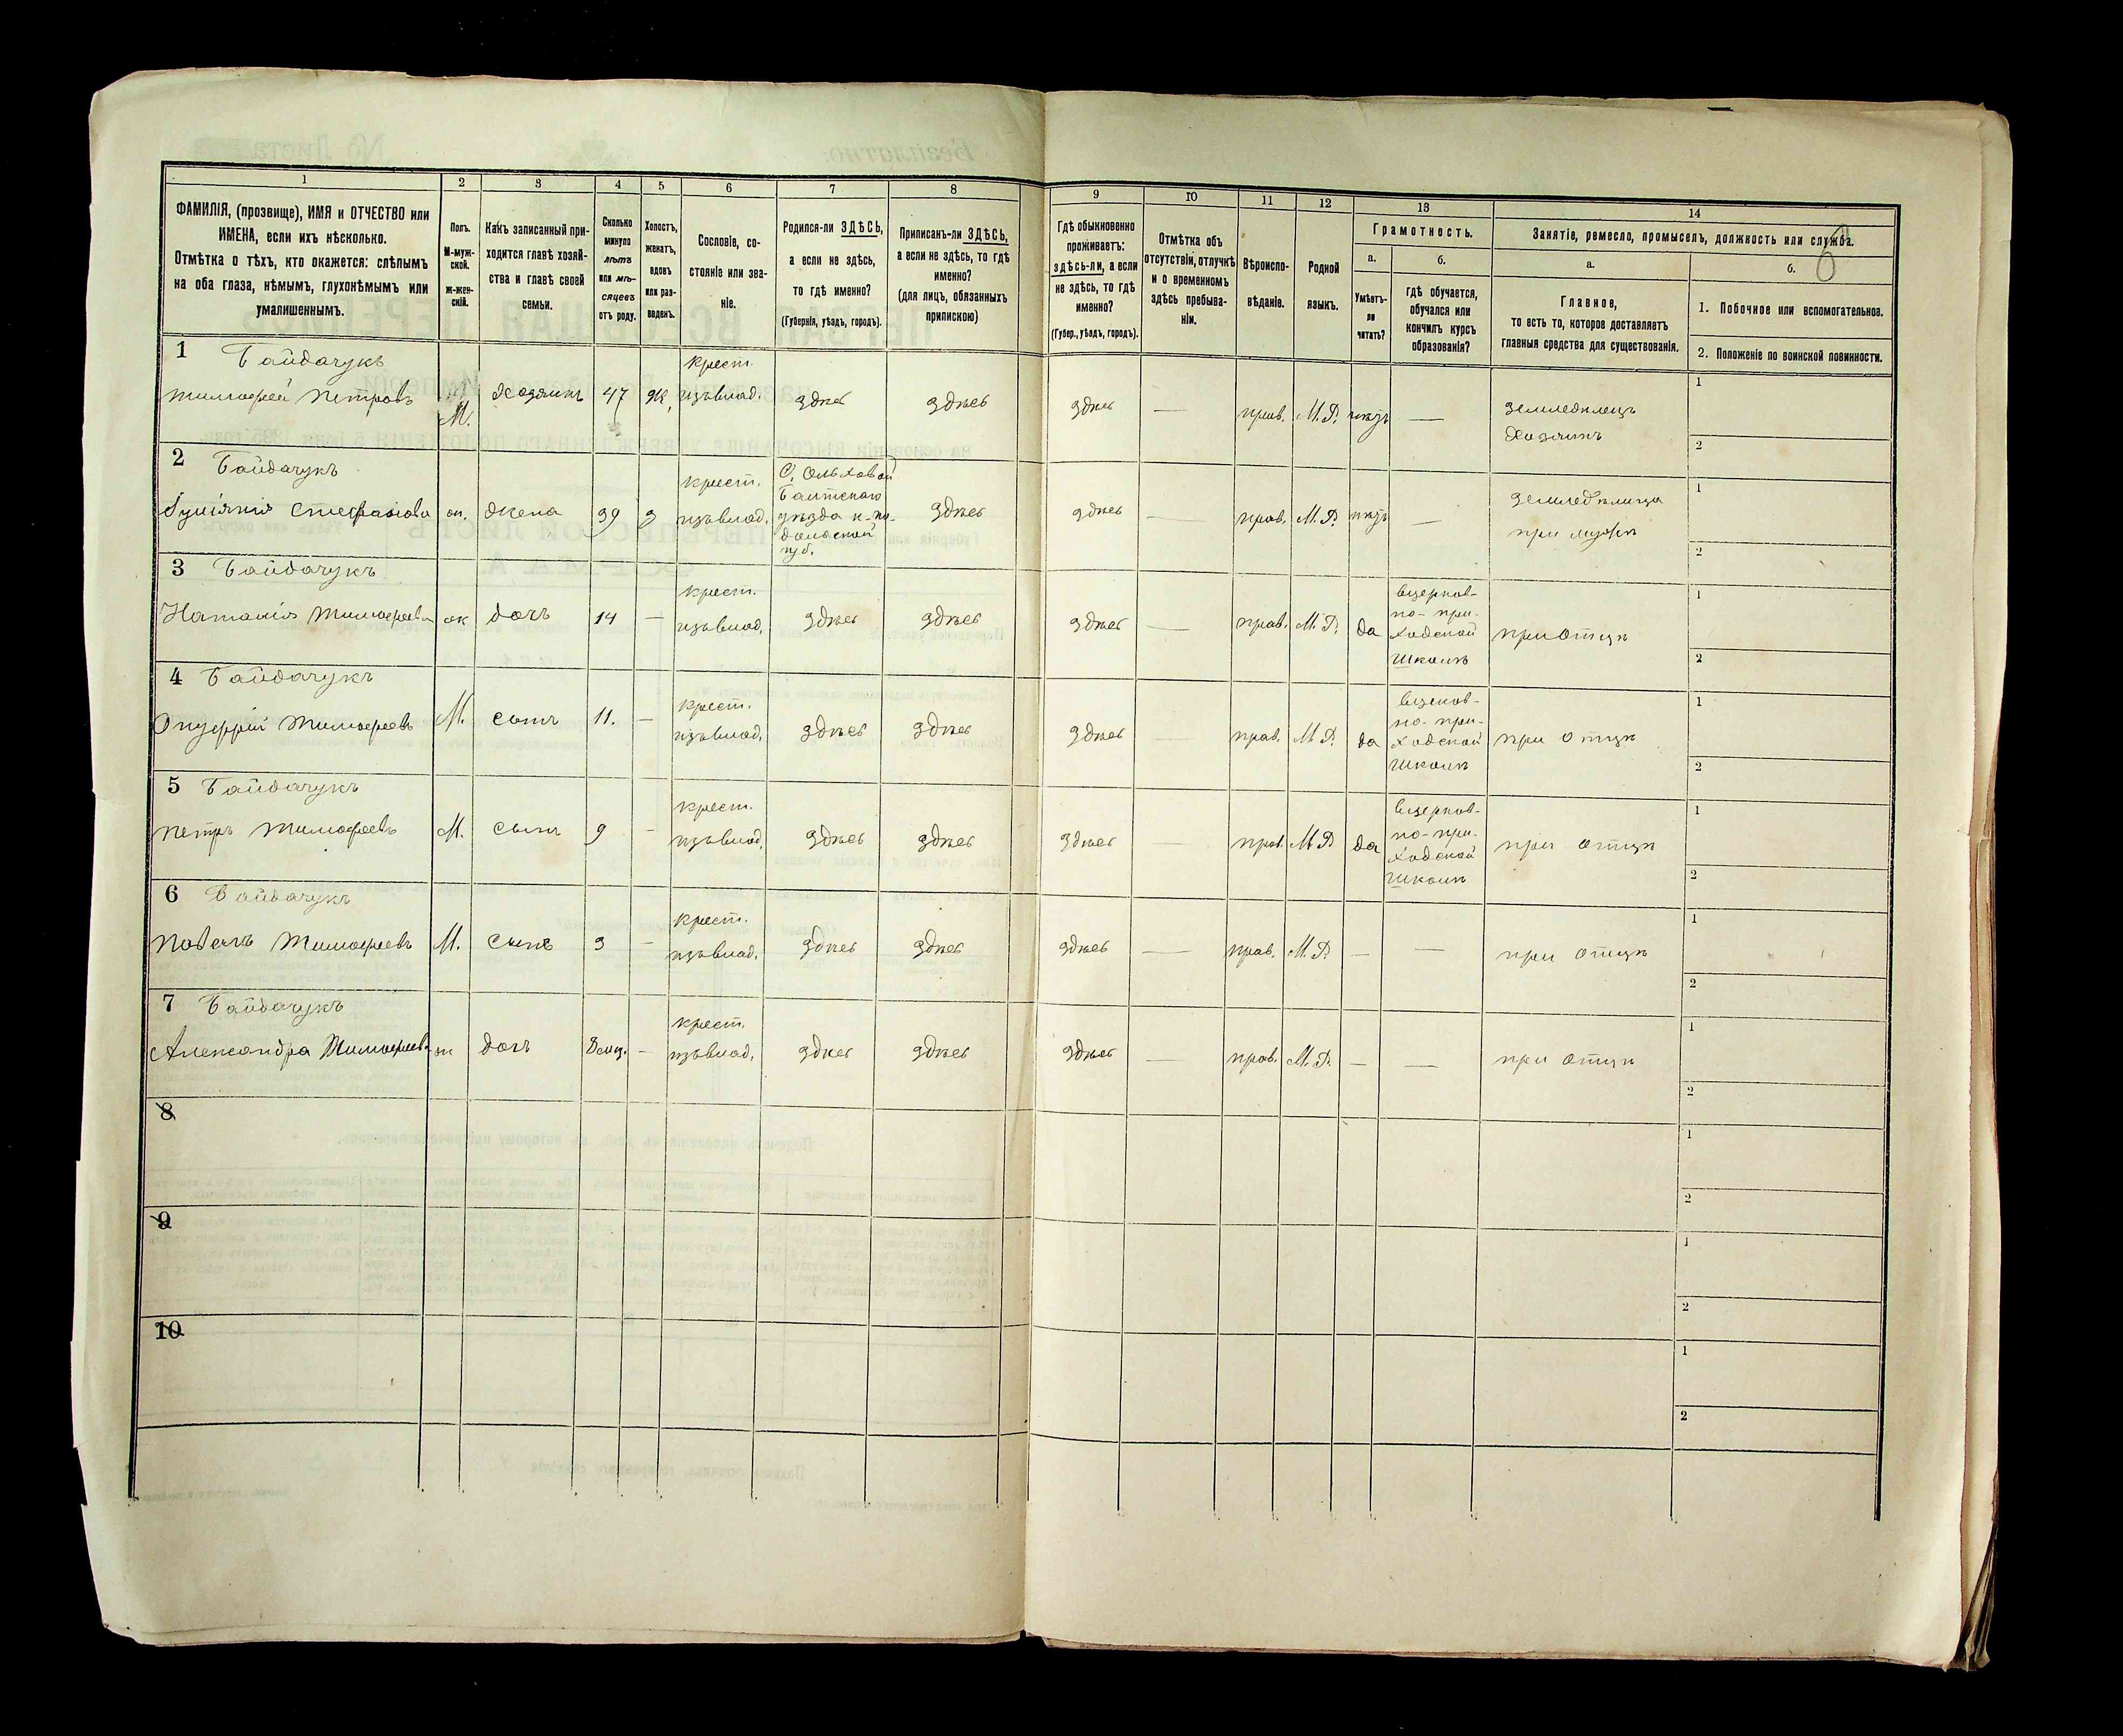 1
2
3
4
5
6
7
8
ФАМИЛІЯ, (прозвище), ИМЯ и ОТЧЕСТВО или
ИМЕНА, если ихъ нѣсколько.
Отмѣтка о тѣхъ, кто окажется: слѣпымъ
на оба глаза, нѣмымъ, глухонѣмымъ или
умалишеннымъ.
Полъ.
М-муж-
ской.
ж-жен-
скій.
Какъ записанный при-
ходится главѣ хозяй-
ства и главѣ своей
семьи.
Сколько
минуло
лѣтъ
или мѣ-
сяцевъ
отъ роду.
Холостъ,
женатъ,
вдовъ
или раз-
веденъ.
Сословіе, со-
стояніе или зва-
ніе.
Родился-ли ЗДѢСЬ,
а если не здѣсь,
то гдѣ именно?
(Губернія, уѣздъ, городъ).
Приписанъ-ли ЗДѢСЬ,
а если не здѣсь, то гдѣ
именно?
(для лицъ, обязанныхъ
припискою)
9
10
11
12
13
14
Гдѣ обыкновенно
проживаетъ:
здѣсь-ли, а если
не здѣсь, то гдѣ
именно?
(Губер., уѣздъ, городъ).
Отмѣтка объ
отсутствіи, отлучкѣ
и о временномъ
здѣсь пребыва-
ніи.
Вѣроиспо-
вѣданіе.
Родной
языкъ.
Грамотность.
а.
Умѣетъ-
ли
читать?
б.
гдѣ обучается,
обучался или
кончилъ курсъ
образованія?
Занятіе, ремесло, промыселъ, должность или служба.
а.
Главное,
то есть то, которое доставляетъ
главныя средства для существованія.
б.
1. Побочное или вспомогательное.
2. Положеніе по воинской повинности.
1 Байдачукъ
Тимофей Петровъ
М.
Хозяинъ
47
Ж
крест.
изъ влад.
здѣсь
здѣсь
здѣсь
—
прав.
М.Р.
нѣтъ
—
Земледѣлецъ
Хозяинъ
1
2
2 Байдачукъ
Стефанова
ж.
Жена
39
З
крест.
изъ влад.
С. Ольховой
Балтскаго
уѣзда К-По-
дольской
губ.
здѣсь
здѣсь
—
прав.
М.Р.
нѣтъ
—
Земледѣлица
при мужѣ
1
2
3 Байдачукъ
Наталія Тимофеева
ж
дочь
14
—
крест.
изъ влад.
здѣсь
здѣсь
здѣсь
—
прав.
М.Р.
да
вцерков-
но-при-
ходской
Школѣ
при Отцѣ
1
2
4 Байдачукъ
Онуфрій Тимофеевъ
М.
сынъ
11.
—
крест.
изъ влад.
здѣсь
здѣсь
здѣсь
—
прав.
М.Р.
да
вцеков-
но-при-
ходской
Школѣ
при Отцѣ
1
2
5 Байдачукъ
Петръ Тимофеевъ
М.
сынъ
9
—
крест.
изъ влад.
здѣсь
здѣсь
здѣсь
—
прав.
М Р
да
вцерков-
но-при-
ходской
Школѣ
при отцѣ
1
2
6 Байдачукъ
Павелъ Тимофеевъ
М.
сынъ
3
—
крест.
изъ влад.
здѣсь
здѣсь
здѣсь
—
прав.
М.Р.
—
—
при отцѣ
1
2
7 Байдачукъ
Александра Тимофеева
ж
дочь
8 мц.
—
крест.
изъ влад.
здѣсь
здѣсь
здѣсь
—
прав.
М.Р.
—
—
при отцѣ
1
2
8
1
2
9
1
2
10
1
2